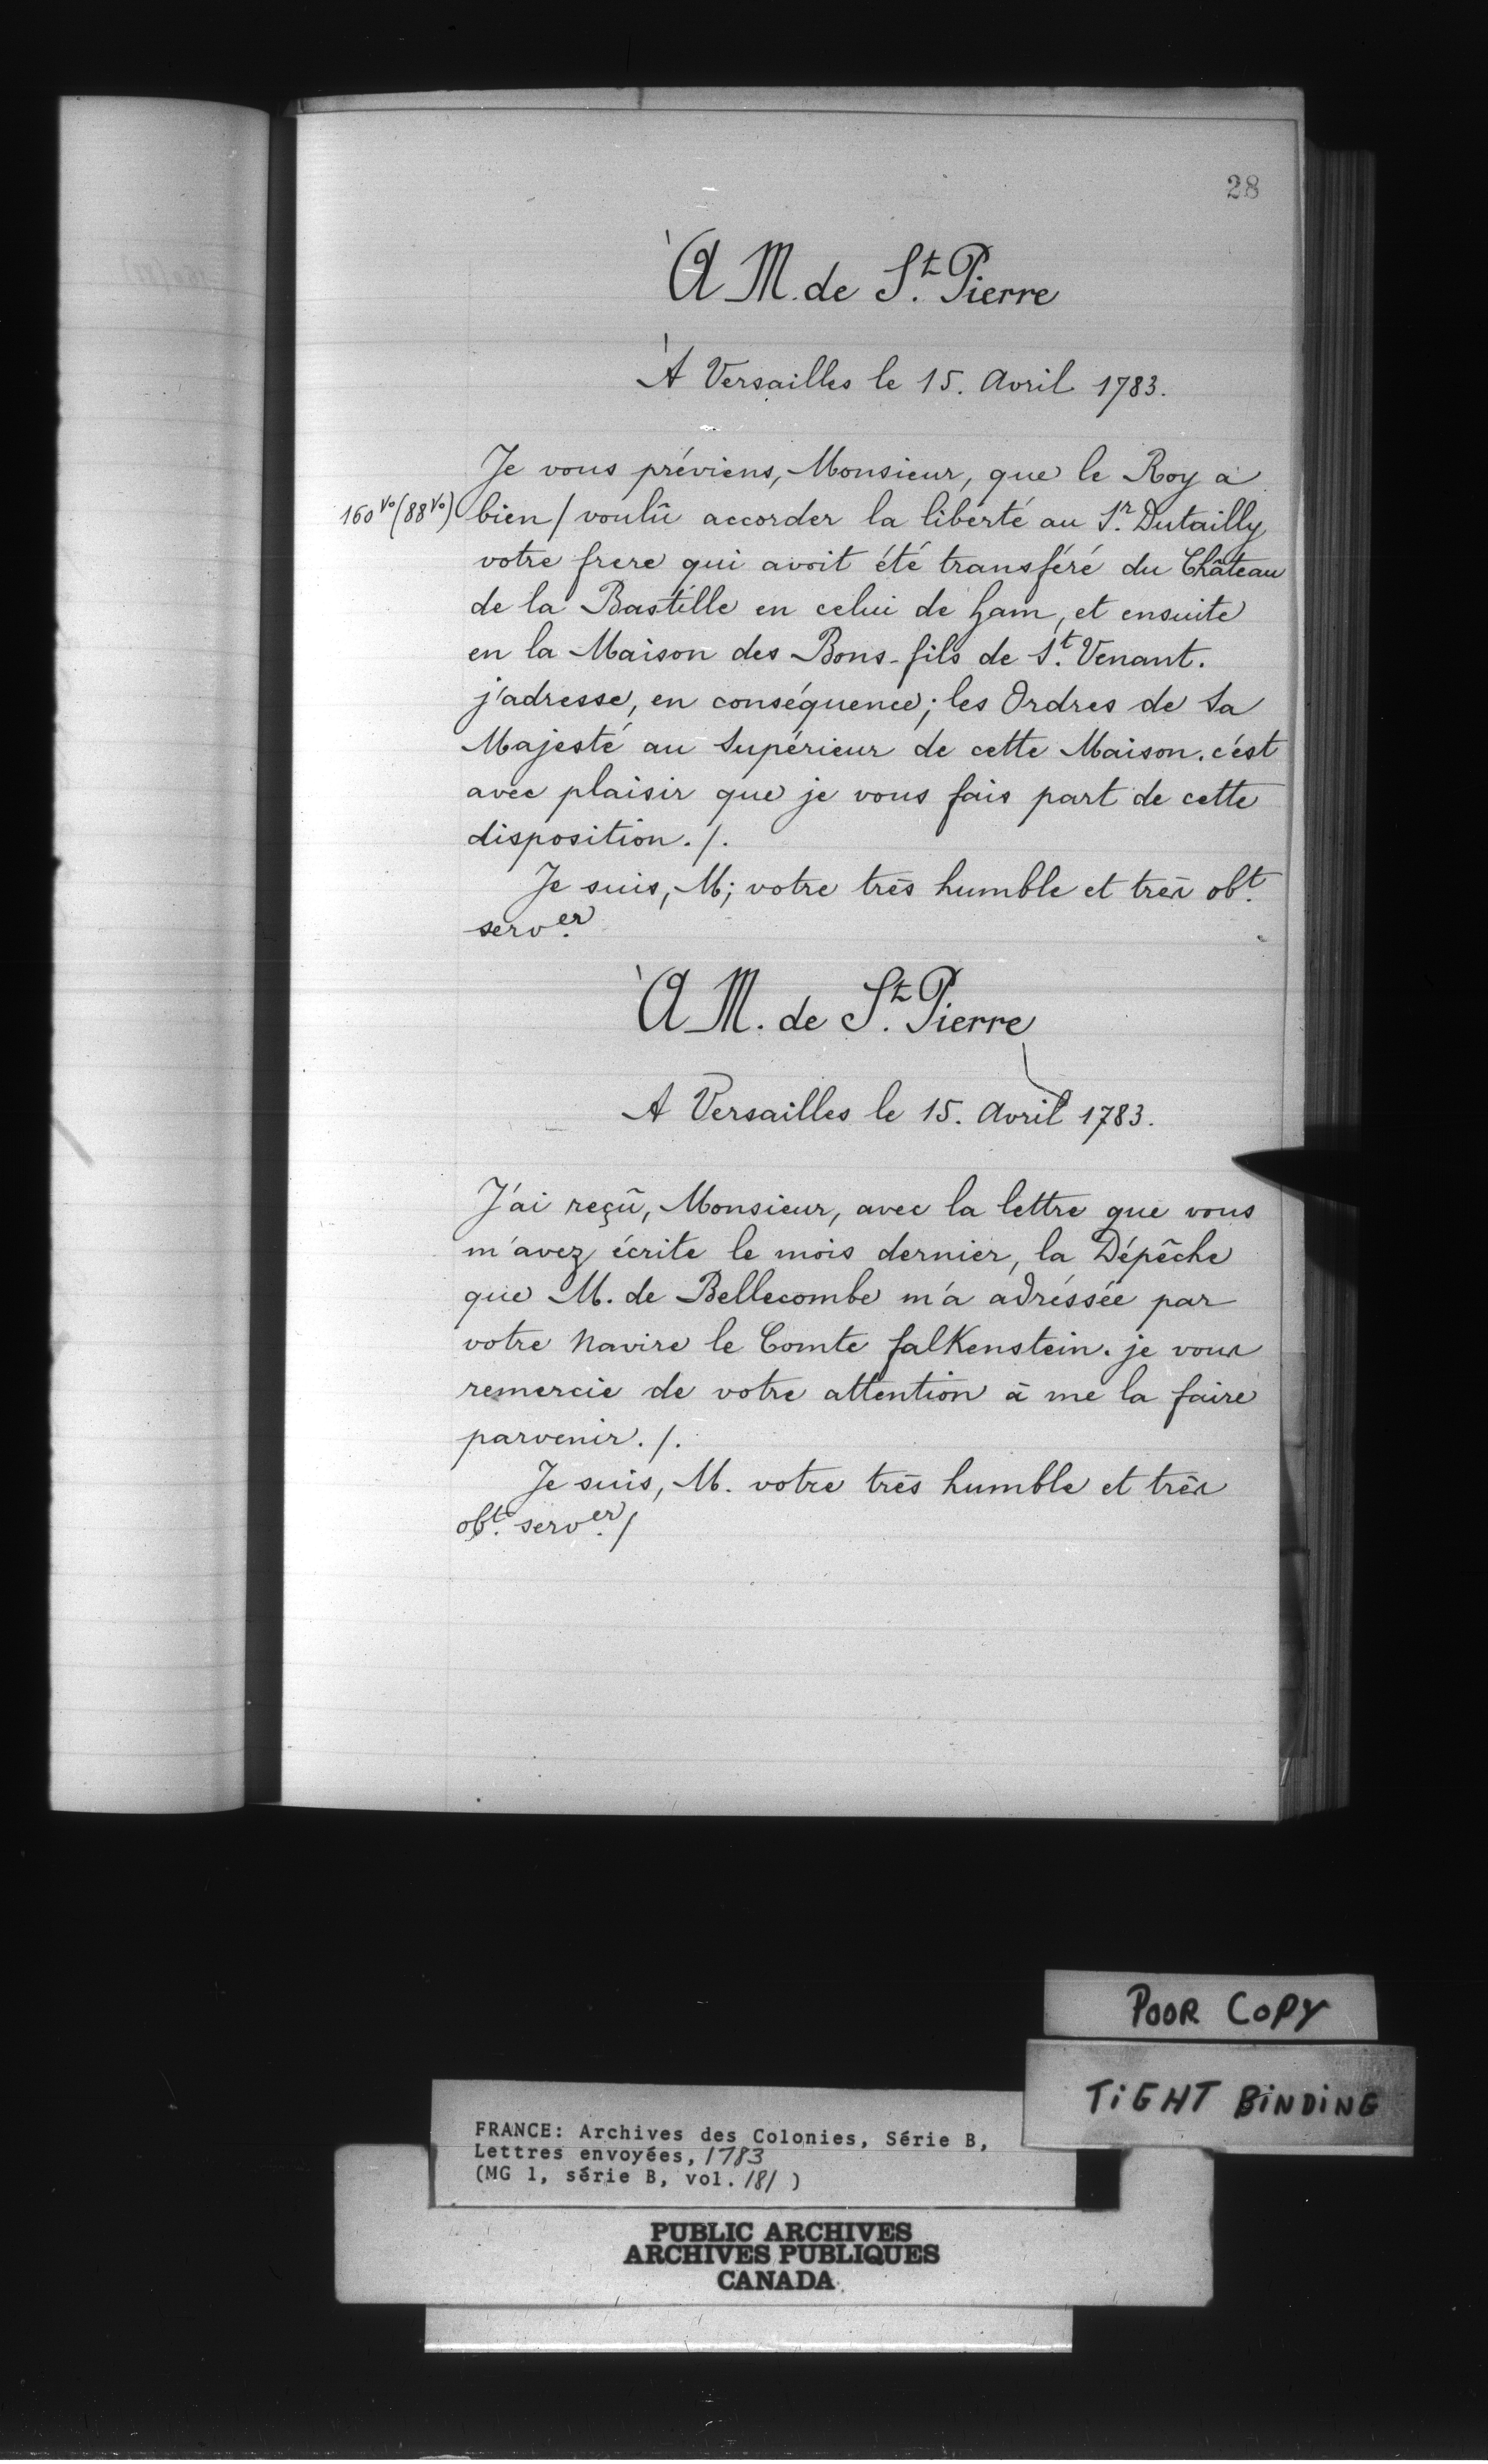 28
À M. de St. Pierre
À Versailles le 15. Avril 1783.
Je vous préviens, Monsieur, que le Roy a
160 vo (88 vo) bien / voulû accorder la liberté au Sr. Dutailly
votre frere qui avoit été transféré du Château
de la Bastille en celui de ham, et ensuite
en la Maison des Bons-fils de St. Venant.
j'adresse, en conséquence; les Ordres de Sa
Majesté au Supérieur de cette Maison. c'est
avec plaisir que je vous fais part de cette
disposition. /.
Je suis, M; votre très humble et très obt.
server.
À M. de St. Pierre
A Versailles le 15. Avril 1783.
J'ai reçû, Monsieur, avec la lettre que vous
m'avez écrite le mois dernier, la Dépêche
que M. de Bellecombe m'a adréssée par
votre Navire le Comte falKenstein. je vous
remercie de votre attention à me la faire
parvenir. /.
Je suis, M. votre très humble et très
obt. server. /
POOR COPY
TIGHT BINDING
FRANCE: Archives des Colonies, Série B,
Lettres envoyées, 1783
(MG 1, série B, vol. 181 )
PUBLIC ARCHIVES
ARCHIVES PUBLIQUES
CANADA